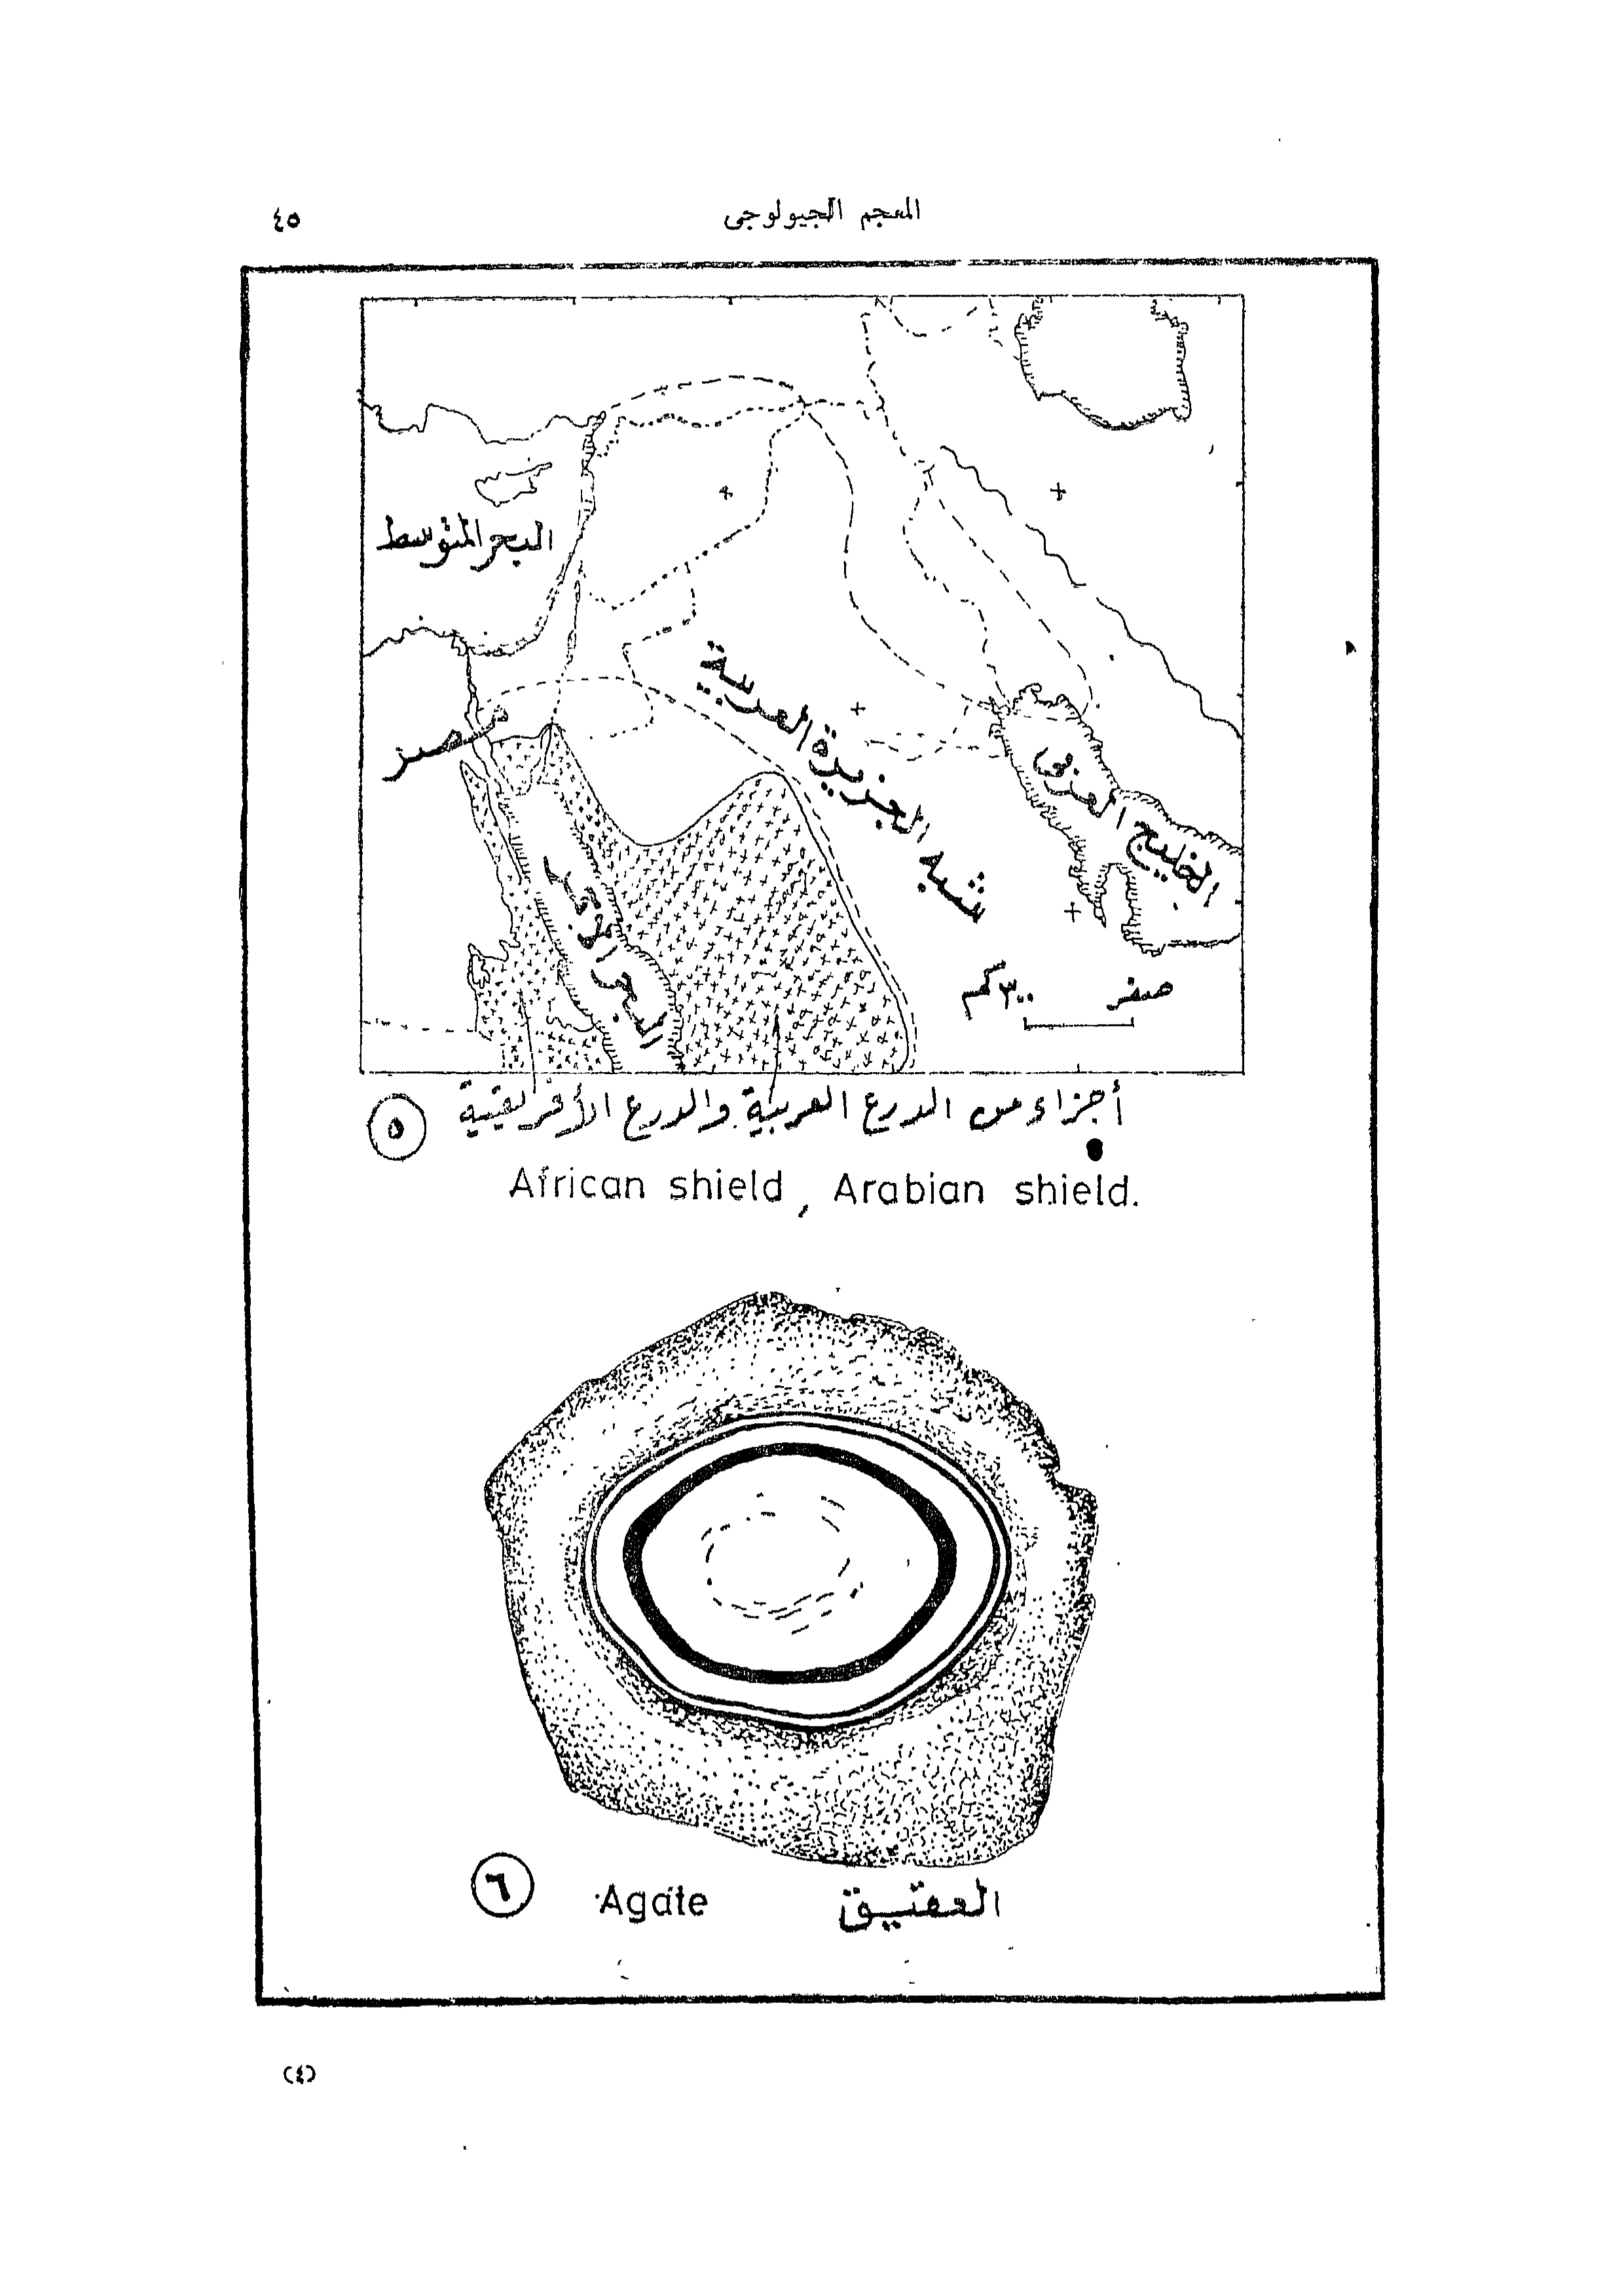 المعجم الجيولوجى
٤٥
البحر المتوسط
مصر
شبه الجزيرة العربية
الخليج العربى
البحر الأحمر
صفر ٣٠٠ كم
أجزاء من الدرع العربية والدرع الأفريقية
٥
African shield, Arabian shield.
٦ Agate العقيق
(٤)